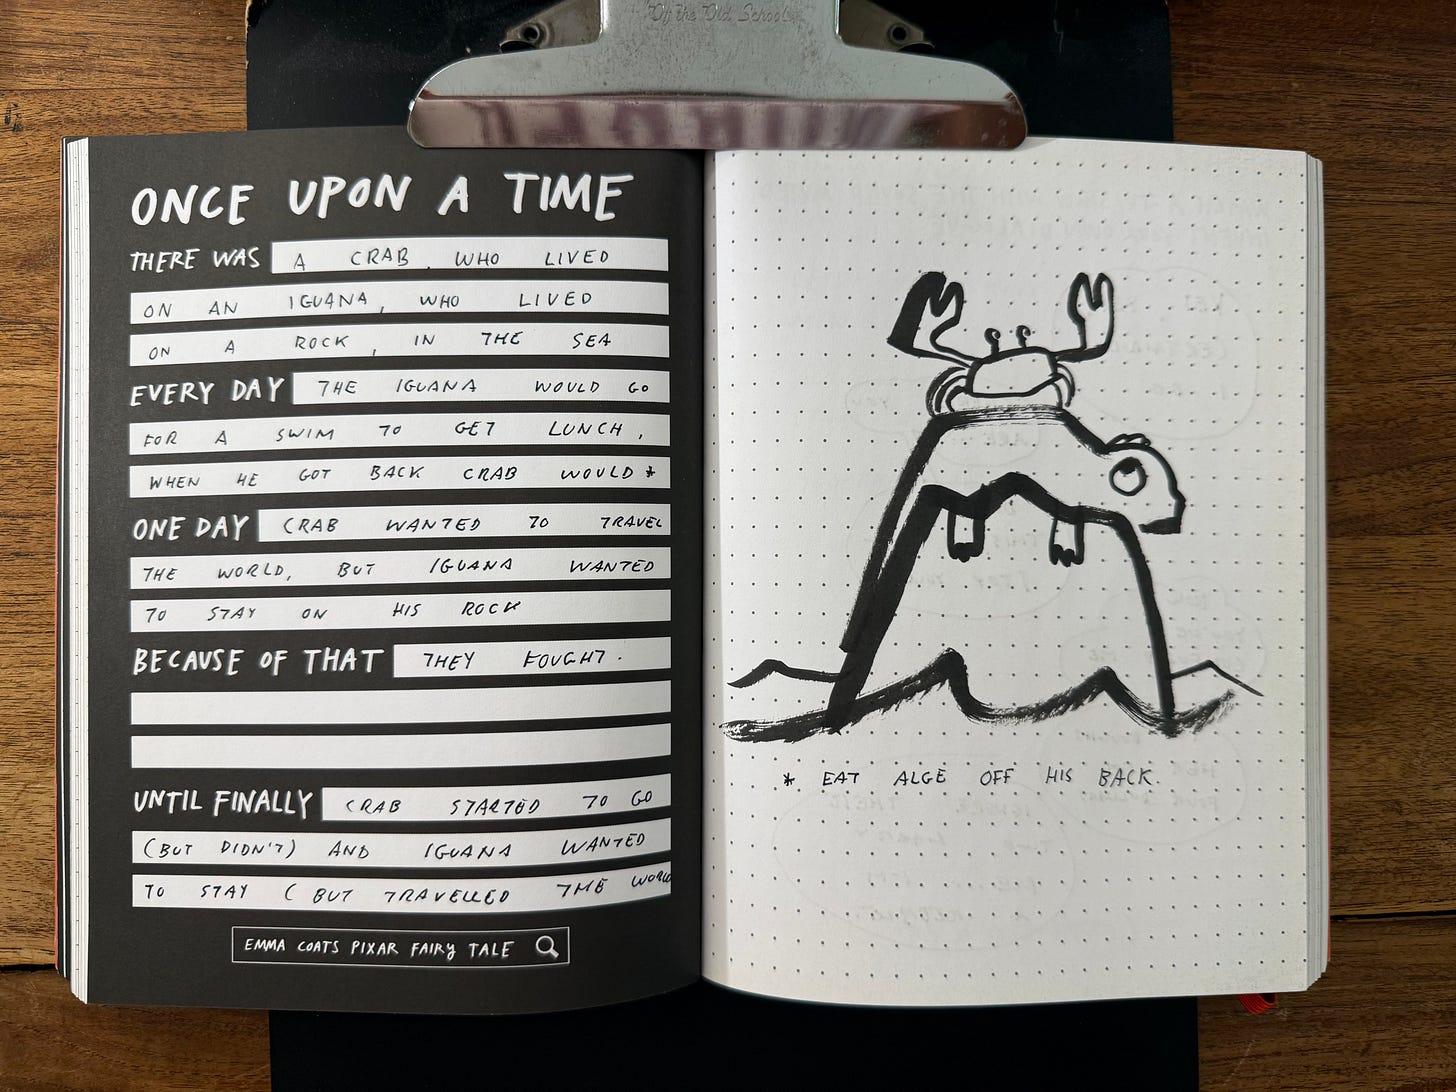 Off the Old School
ONCE UPON A TIME
THERE WAS A CRAB, WHO LIVED
ON AN IGUANA, WHO LIVED
ON A ROCK, IN THE SEA
EVERY DAY THE IGUANA WOULD GO
FOR A SWIM TO GET LUNCH,
WHEN HE GOT BACK CRAB WOULD *
ONE DAY CRAB WANTED TO TRAVEL
THE WORLD, BUT IGUANA WANTED
TO STAY ON HIS ROCK
BECAUSE OF THAT THEY FOUGHT.
UNTIL FINALLY CRAB STARTED TO GO
(BUT DIDN'T) AND IGUANA WANTED
TO STAY (BUT TRAVELLED THE WORLD
EMMA COATS PIXAR FAIRY TALE
* EAT ALGE OFF HIS BACK.